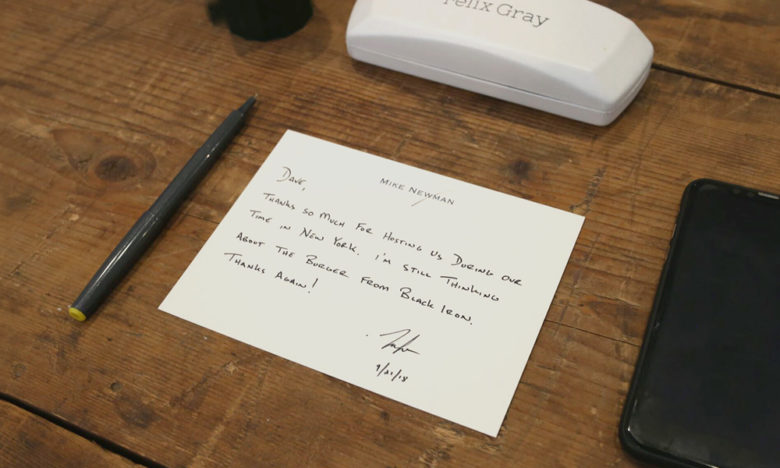 Felix Gray
MIKE NEWMAN
DAVE,
THANKS SO MUCH FOR HOSTING US DURING OUR
TIME IN NEW YORK. I'M STILL THINKING
ABOUT THE BURGER FROM BLACK IRON.
THANKS AGAIN!
9/21/18